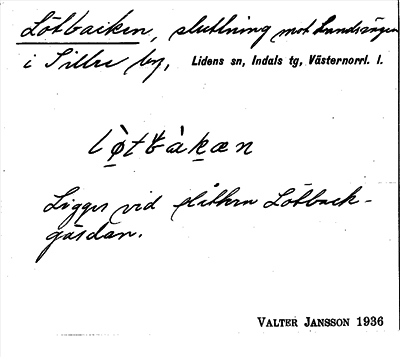 Lötbacken, sluttning mot Lundsängen
i Sillre by, Lidens sn, Indals tg, Västernorrl. l.
l ø̀ t b à k æ n
Ligger vid slåtten Lötback-
gärdan.
VALTER JANSSON 1936